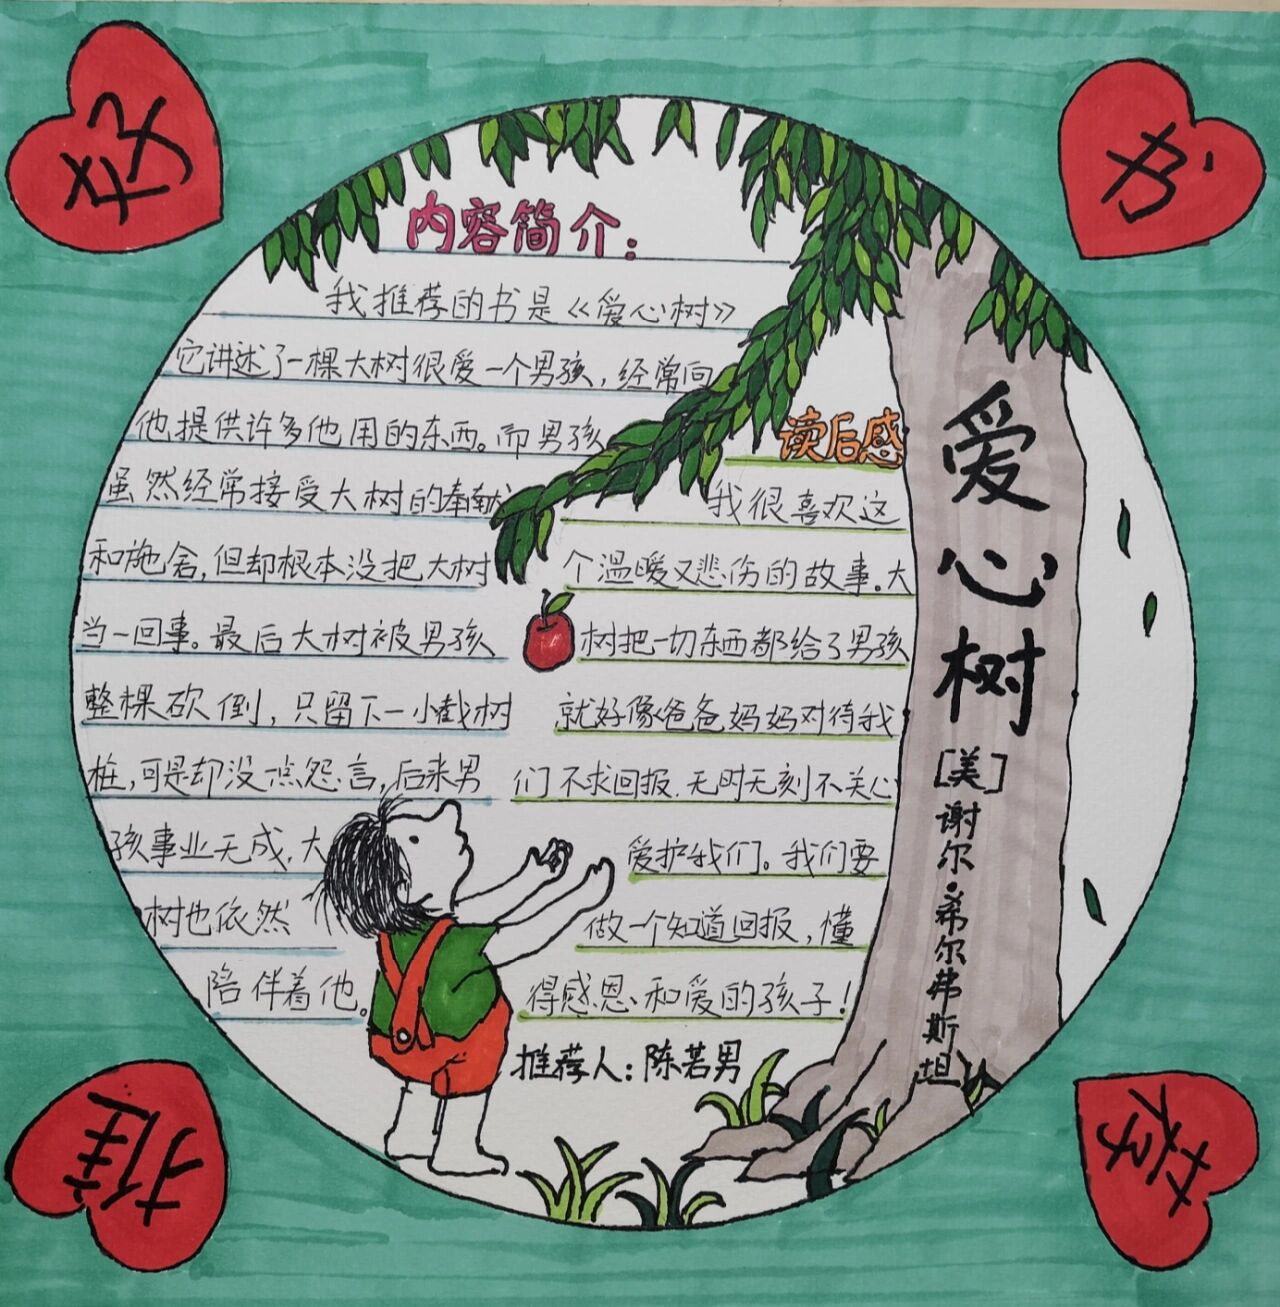 好
书
推
荐
内容简介：
我推荐的书是《爱心树》
它讲述了一棵大树很爱一个男孩，经常向
他提供许多他用的东西。而男孩
虽然经常接受大树的奉献
和施舍，但却根本没把大树
当一回事。最后大树被男孩
整棵砍倒，只留下一小截树
桩，可是却没点怨言，后来男
孩事业无成，大
树也依然
陪伴着他。
读后感
我很喜欢这
个温暖又悲伤的故事。大
树把一切东西都给了男孩
就好像爸爸妈妈对待我
们不求回报，无时无刻不关心
爱护我们。我们要
做一个知道回报，懂
得感恩和爱的孩子！
推荐人：陈若男
爱心树
[美]谢尔·希尔弗斯坦